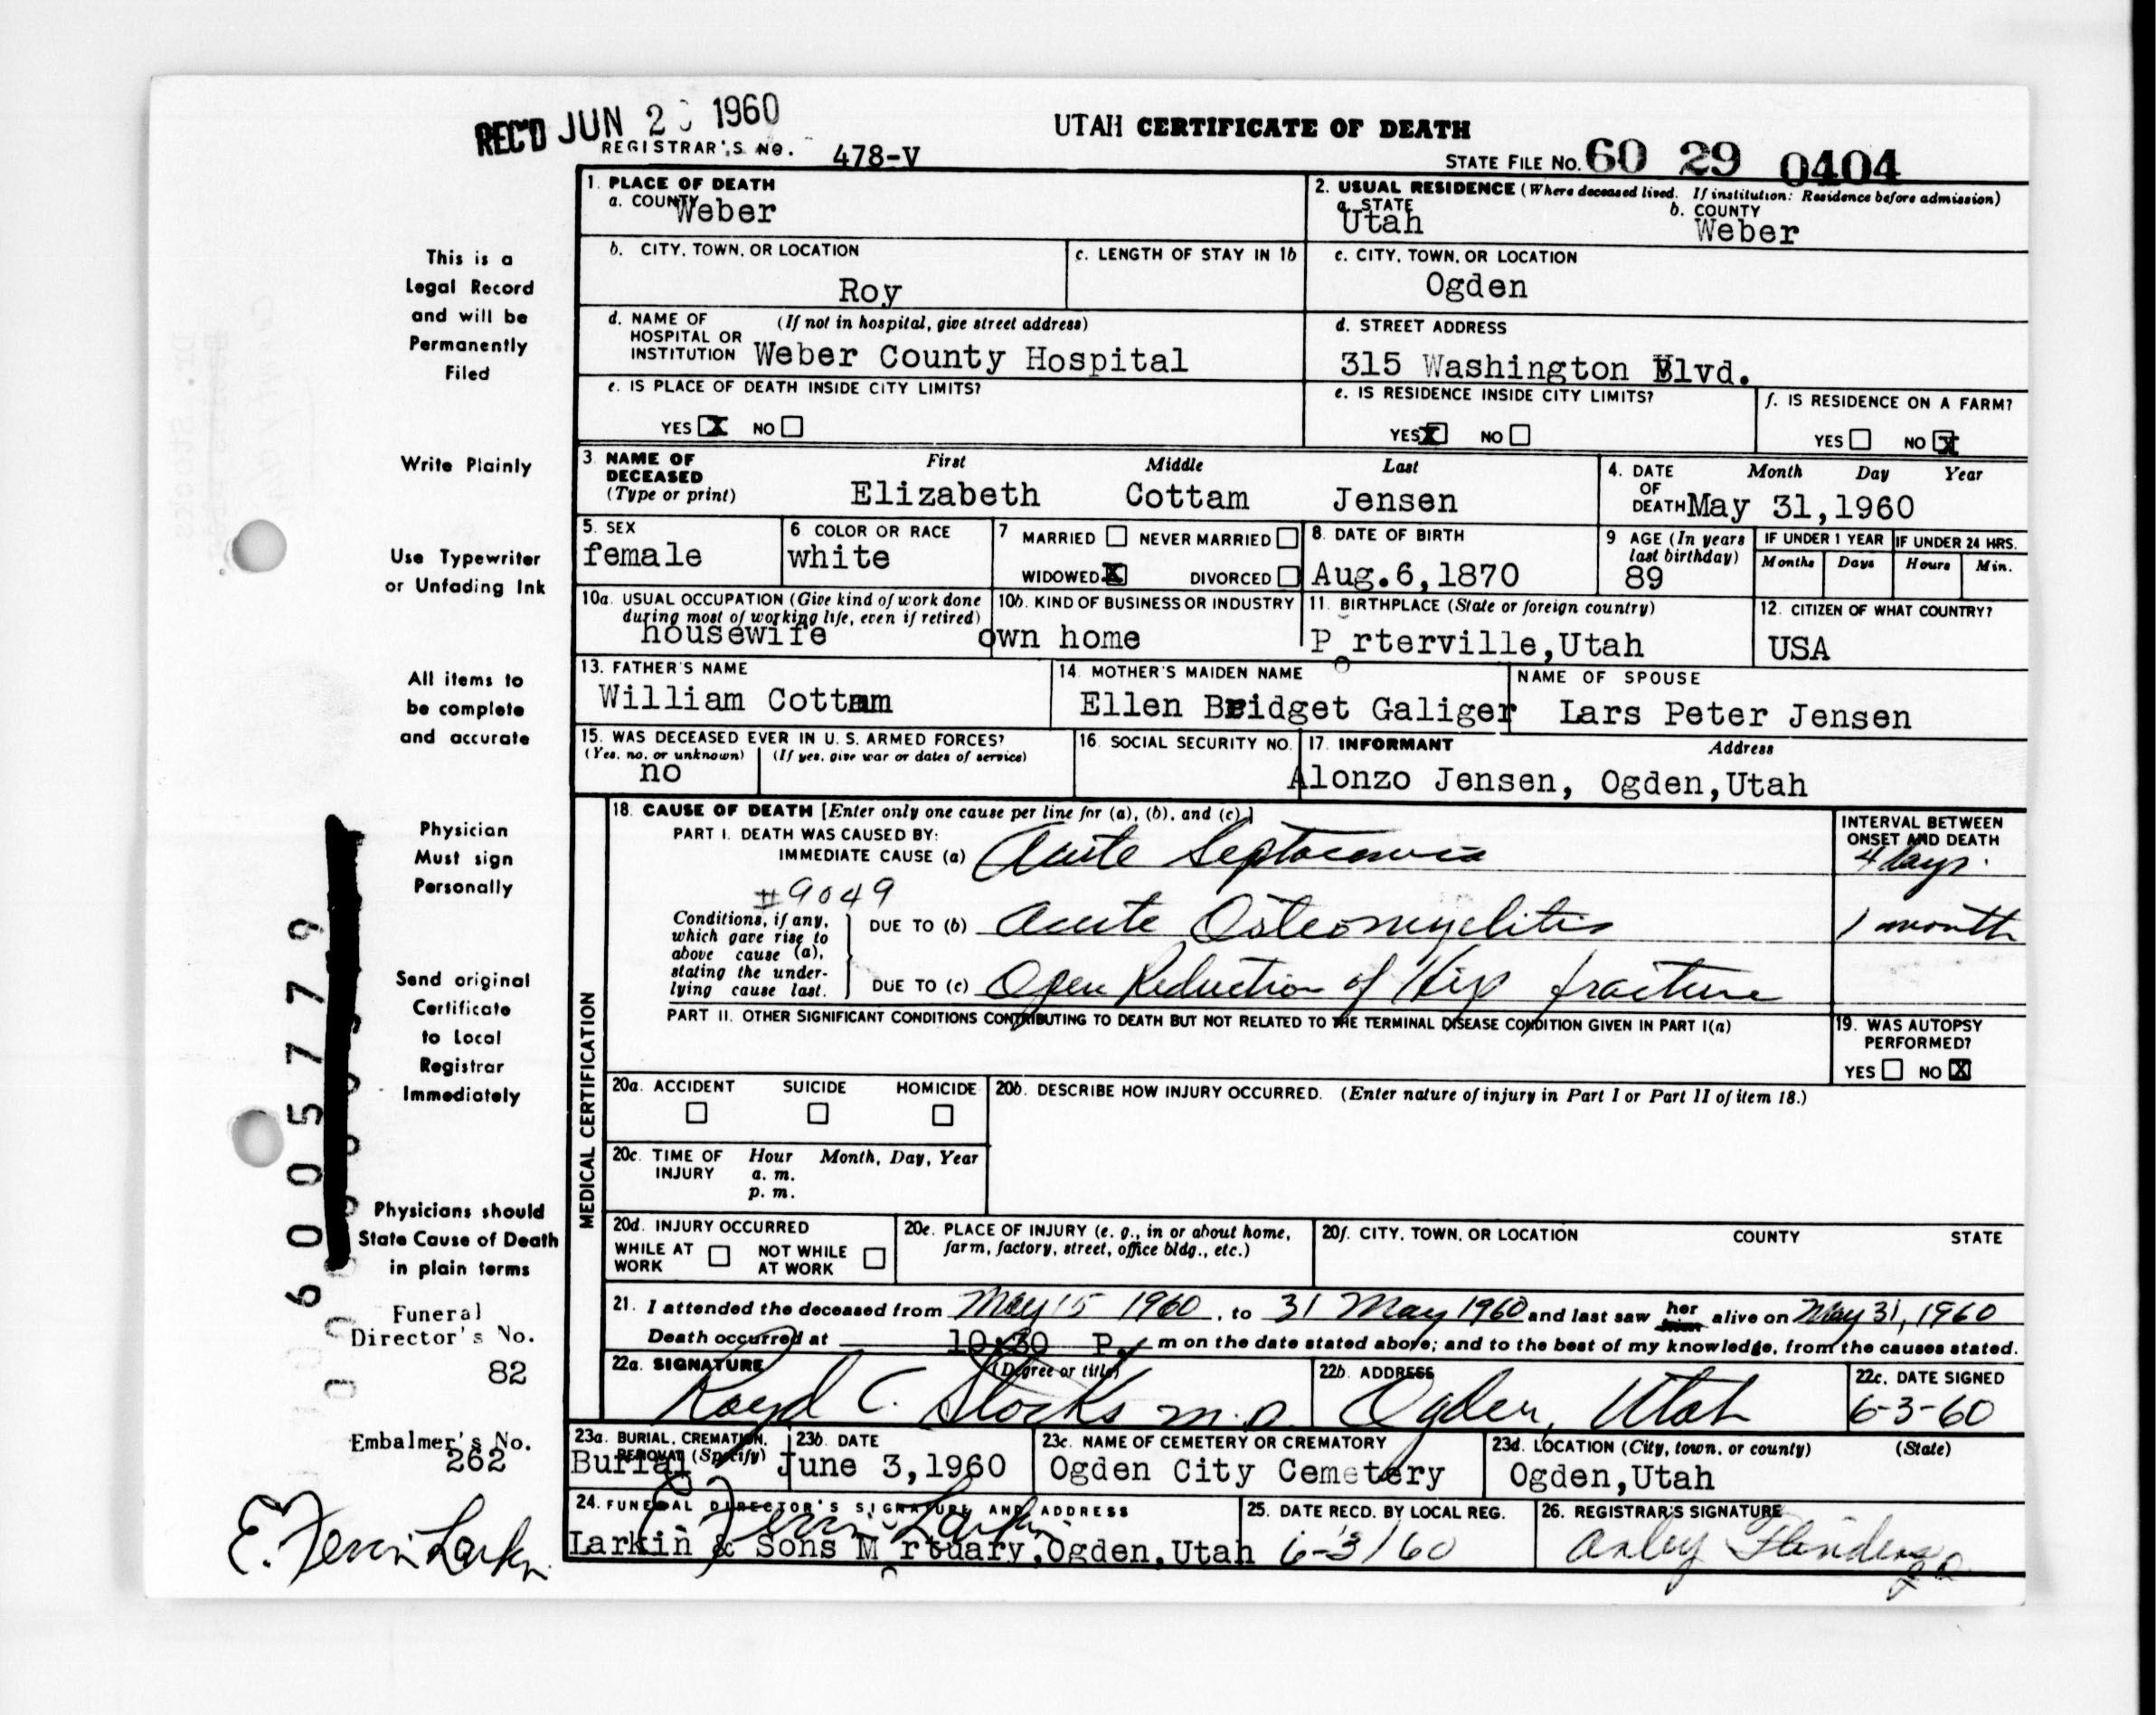 REC'D JUN 2 1960
UTAH CERTIFICATE OF DEATH
REGISTRAR'S NO. 478-V
STATE FILE NO. 60 29 0404
1. PLACE OF DEATH
a. COUNTY Weber
2. USUAL RESIDENCE (Where deceased lived. If institution: Residence before admission)
a. STATE Utah
b. COUNTY Weber
b. CITY, TOWN, OR LOCATION Roy
c. LENGTH OF STAY IN 1b
c. CITY, TOWN, OR LOCATION Ogden
d. NAME OF HOSPITAL OR INSTITUTION (If not in hospital, give street address) Weber County Hospital
d. STREET ADDRESS 315 Washington Blvd.
e. IS PLACE OF DEATH INSIDE CITY LIMITS?
YES X NO
e. IS RESIDENCE INSIDE CITY LIMITS?
YES X NO
f. IS RESIDENCE ON A FARM?
YES NO X
3. NAME OF DECEASED (Type or print)
First Middle Last
Elizabeth Cottam Jensen
4. DATE OF DEATH Month Day Year
May 31,1960
5. SEX female
6 COLOR OR RACE white
7 MARRIED NEVER MARRIED
WIDOWED X DIVORCED
8. DATE OF BIRTH Aug.6,1870
9 AGE (In years last birthday) 89
IF UNDER 1 YEAR Months Days
IF UNDER 24 HRS. Hours Min.
10a. USUAL OCCUPATION (Give kind of work done during most of working life, even if retired) housewife
10b. KIND OF BUSINESS OR INDUSTRY own home
11. BIRTHPLACE (State or foreign country) Porterville,Utah
12. CITIZEN OF WHAT COUNTRY? USA
13. FATHER'S NAME William Cottam
14. MOTHER'S MAIDEN NAME Ellen Bridget Galiger
NAME OF SPOUSE Lars Peter Jensen
15. WAS DECEASED EVER IN U. S. ARMED FORCES?
(Yes, no, or unknown) (If yes, give war or dates of service)
no
16. SOCIAL SECURITY NO.
17. INFORMANT Address
Alonzo Jensen, Ogden,Utah
MEDICAL CERTIFICATION
18. CAUSE OF DEATH [Enter only one cause per line for (a), (b), and (c).]
PART I. DEATH WAS CAUSED BY:
IMMEDIATE CAUSE (a) Acute Septacemia
INTERVAL BETWEEN ONSET AND DEATH
4 days.
#9049
Conditions, if any, which gave rise to above cause (a), stating the underlying cause last.
DUE TO (b) Acute Osteomyelitis
1 month
DUE TO (c) Open Reduction of Hip fracture
PART II. OTHER SIGNIFICANT CONDITIONS CONTRIBUTING TO DEATH BUT NOT RELATED TO THE TERMINAL DISEASE CONDITION GIVEN IN PART I(a)
19. WAS AUTOPSY PERFORMED?
YES NO X
20a. ACCIDENT SUICIDE HOMICIDE
20b. DESCRIBE HOW INJURY OCCURRED. (Enter nature of injury in Part I or Part II of item 18.)
20c. TIME OF INJURY Hour a. m. p. m. Month, Day, Year
20d. INJURY OCCURRED
WHILE AT WORK NOT WHILE AT WORK
20e. PLACE OF INJURY (e. g., in or about home, farm, factory, street, office bldg., etc.)
20f. CITY, TOWN, OR LOCATION COUNTY STATE
21. I attended the deceased from May 15 1960, to 31 May 1960 and last saw her him alive on May 31, 1960
Death occurred at 10:30 P. m on the date stated above; and to the best of my knowledge, from the causes stated.
22a. SIGNATURE (Degree or title)
Royd C. Stocks M.D.
22b. ADDRESS Ogden, Utah
22c. DATE SIGNED 6-3-60
23a. BURIAL, CREMATION, REMOVAL (Specify) Burial
23b. DATE June 3,1960
23c. NAME OF CEMETERY OR CREMATORY Ogden City Cemetery
23d. LOCATION (City, town, or county) (State) Ogden,Utah
24. FUNERAL DIRECTOR'S SIGNATURE AND ADDRESS
Larkin & Sons Mortuary,Ogden,Utah
25. DATE RECD. BY LOCAL REG. 6-3/60
26. REGISTRAR'S SIGNATURE
This is a
Legal Record
and will be
Permanently
Filed
Write Plainly
Use Typewriter
or Unfading Ink
All items to
be complete
and accurate
Physician
Must sign
Personally
Send original
Certificate
to Local
Registrar
Immediately
Physicians should
State Cause of Death
in plain terms
Funeral
Director's No.
82
Embalmer's No.
262
6005779